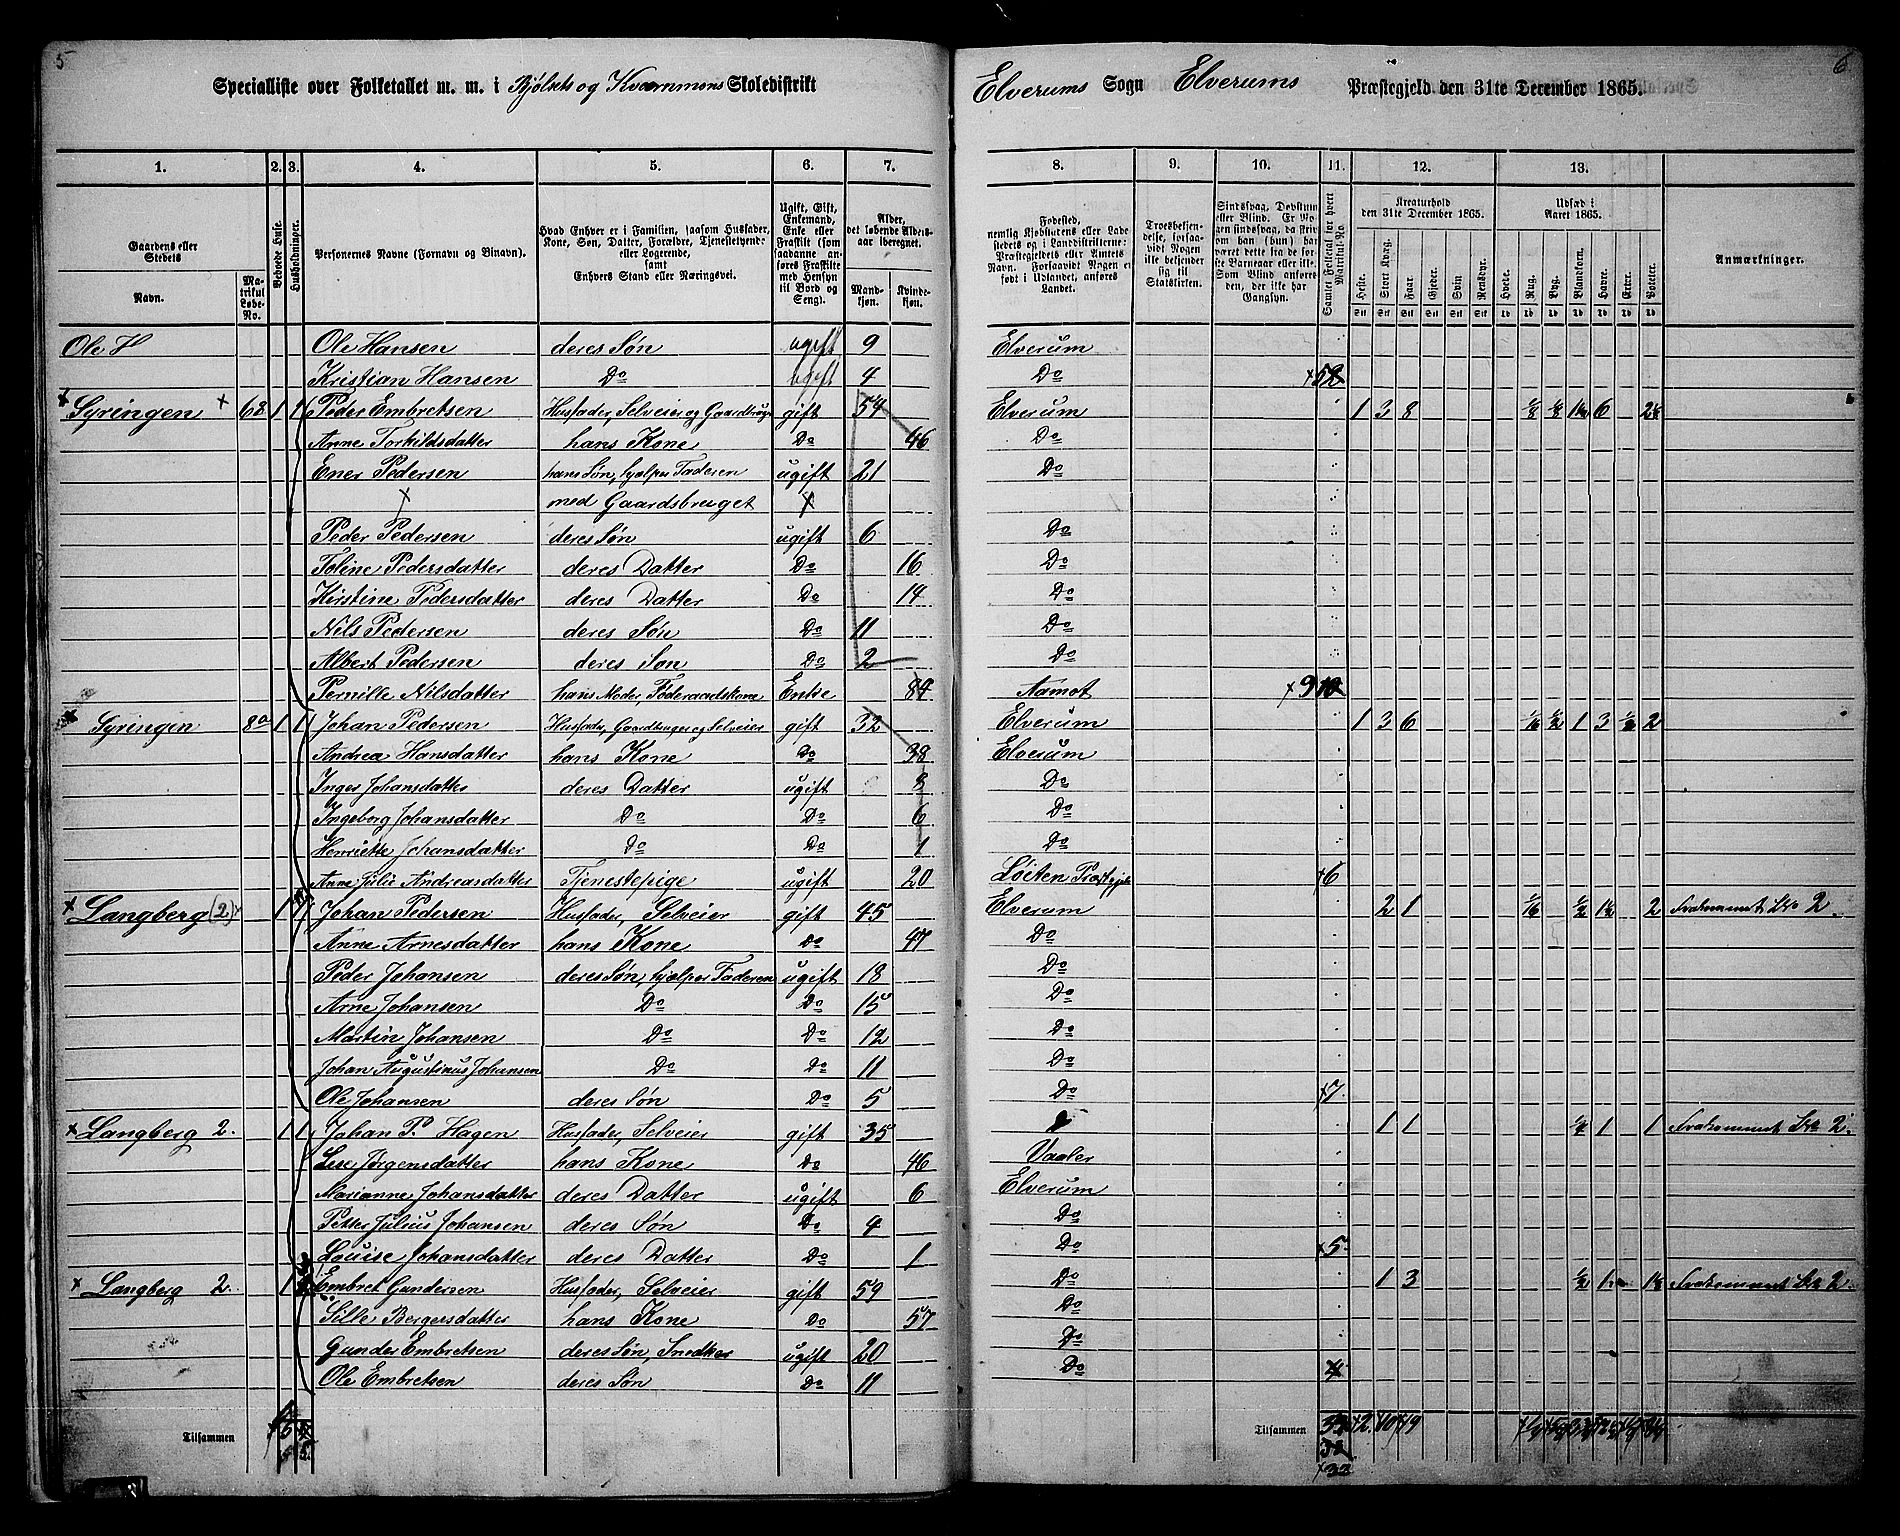 5
6
Specialliste over Folketallet m. m. i Bjølsets og Kværnmoens Skoledistrikt Elverums Sogn Elverums Præstegjeld den 31te December 1865.
1. 2. 3. 4. 5. 6. 7. 8. 9. 10. 11. 12. 13.
Gaardens eller Stedets Navn.
Matrikul Løbe-No.
Beboede Huse.
Husholdninger.
Personernes Navne (Fornavn og Binavn).
Hvad Enhver er i Familien, saasom Husfader, Kone, Søn, Datter, Forældre, Tjenestetyende eller Logerende, samt Enhvers Stand eller Næringsvei.
Ugift, Gift, Enkemand, Enke eller Fraskilt (som saadanne anføres Fraskilte med Hensyn til Bord og Seng).
Alder, det løbende Aldersaar iberegnet.
Mandkjøn. Kvindekjøn.
Fødested, nemlig Kjøbstadens eller Ladestedets og i Landdistrikterne: Præstegjeldets eller Amtets Navn. Forsaavidt Nogen er født i Udlandet, anføres Landet.
Troesbekjendelse, forsaavidt Nogen ikke bekjender sig til Statskirken.
Sindssvag, Døvstum eller Blind.
Samlet Folketal for hvert Matrikul-No.
Kreaturhold den 31te December 1865.
Heste. Stort Kvæg. Faar. Gjeder. Svin. Rensdyr.
Udsæd i Aaret 1865.
Hvede. Rug. Byg. Blandkorn. Havre. Erter. Poteter.
Anmærkninger.
Ole H Ole Hansen deres Søn ugift 9 Elverum
Kristian Hansen Do ugift 4 Do
Syringen 1 1 Peder Embretsen Husfader, Selveier og Gaardbruger gift 54 Elverum 1 3 8 1/8 1/8 6
Anne Torkildsdatter hans Kone Do 46 Do
Ener Pedersen hans Søn, hjælper Faderen ugift 21 Do
med Gaardsbruget
Peder Pedersen deres Søn ugift 6 Do
Toline Pedersdatter deres Datter Do 16 Do
Kirstine Pedersdatter deres Datter Do 14 Do
Nils Pedersen deres Søn Do 11 Do
Albert Pedersen deres Søn Do 2 Do
Pernille Nilsdatter hans Moder, Føderaadskone Enke 84 Aamot 9
Syringen 8a 1 1 Johan Pedersen Husfader, Gaardbruger og Selveier gift 32 Elverum 1 3 6 1/16 1/2 1 3 2
Andrea Hansdatter hans Kone Do 38 Elverum
Inger Johansdatter deres Datter ugift 8 Do
Ingeborg Johansdatter Do Do 6 Do
Henriette Johansdatter Do Do 1 Do
Anne Julie Andreasdatter Tjenestepige ugift 20 Løiten Præstegjeld 6
Langberg (2) 1 1 Johan Pedersen Husfader, Selveier gift 45 Elverum 2 1 1/16 1/2 1 1/2 2 Frakommet No 2.
Anne Arnesdatter hans Kone Do 47 Do
Peder Johansen deres Søn, hjælper Faderen ugift 18 Do
Arne Johansen Do Do 15 Do
Martin Johansen Do Do 12 Do
Johan Augustinus Johansen Do Do 11 Do
Ole Johansen deres Søn Do 5 Do 7
Langberg 2. 1 1 Johan P. Hagen Husfader, Selveier gift 35 1 1 1/2 1 1 Frakommet No 2.
Lise Jørgensdatter hans Kone Do 46 Vaaler
Marianne Johansdatter deres Datter ugift 6 Elverum
Petter Julius Johansen deres Søn Do 4 Do
Louise Johansdatter deres Datter Do 1 Do 5
Langberg 2. 1 Embret Gundersen Husfader, Selveier gift 59 Do 1 3 1/2 1 Frakommet No 2.
Sille Bergersdatter hans Kone Do 57 Do
Gunder Embretsen deres Søn, Snedker ugift 20 Do
Ole Embretsen deres Søn Do 11 Do 4
Tilsammen
Tilsammen